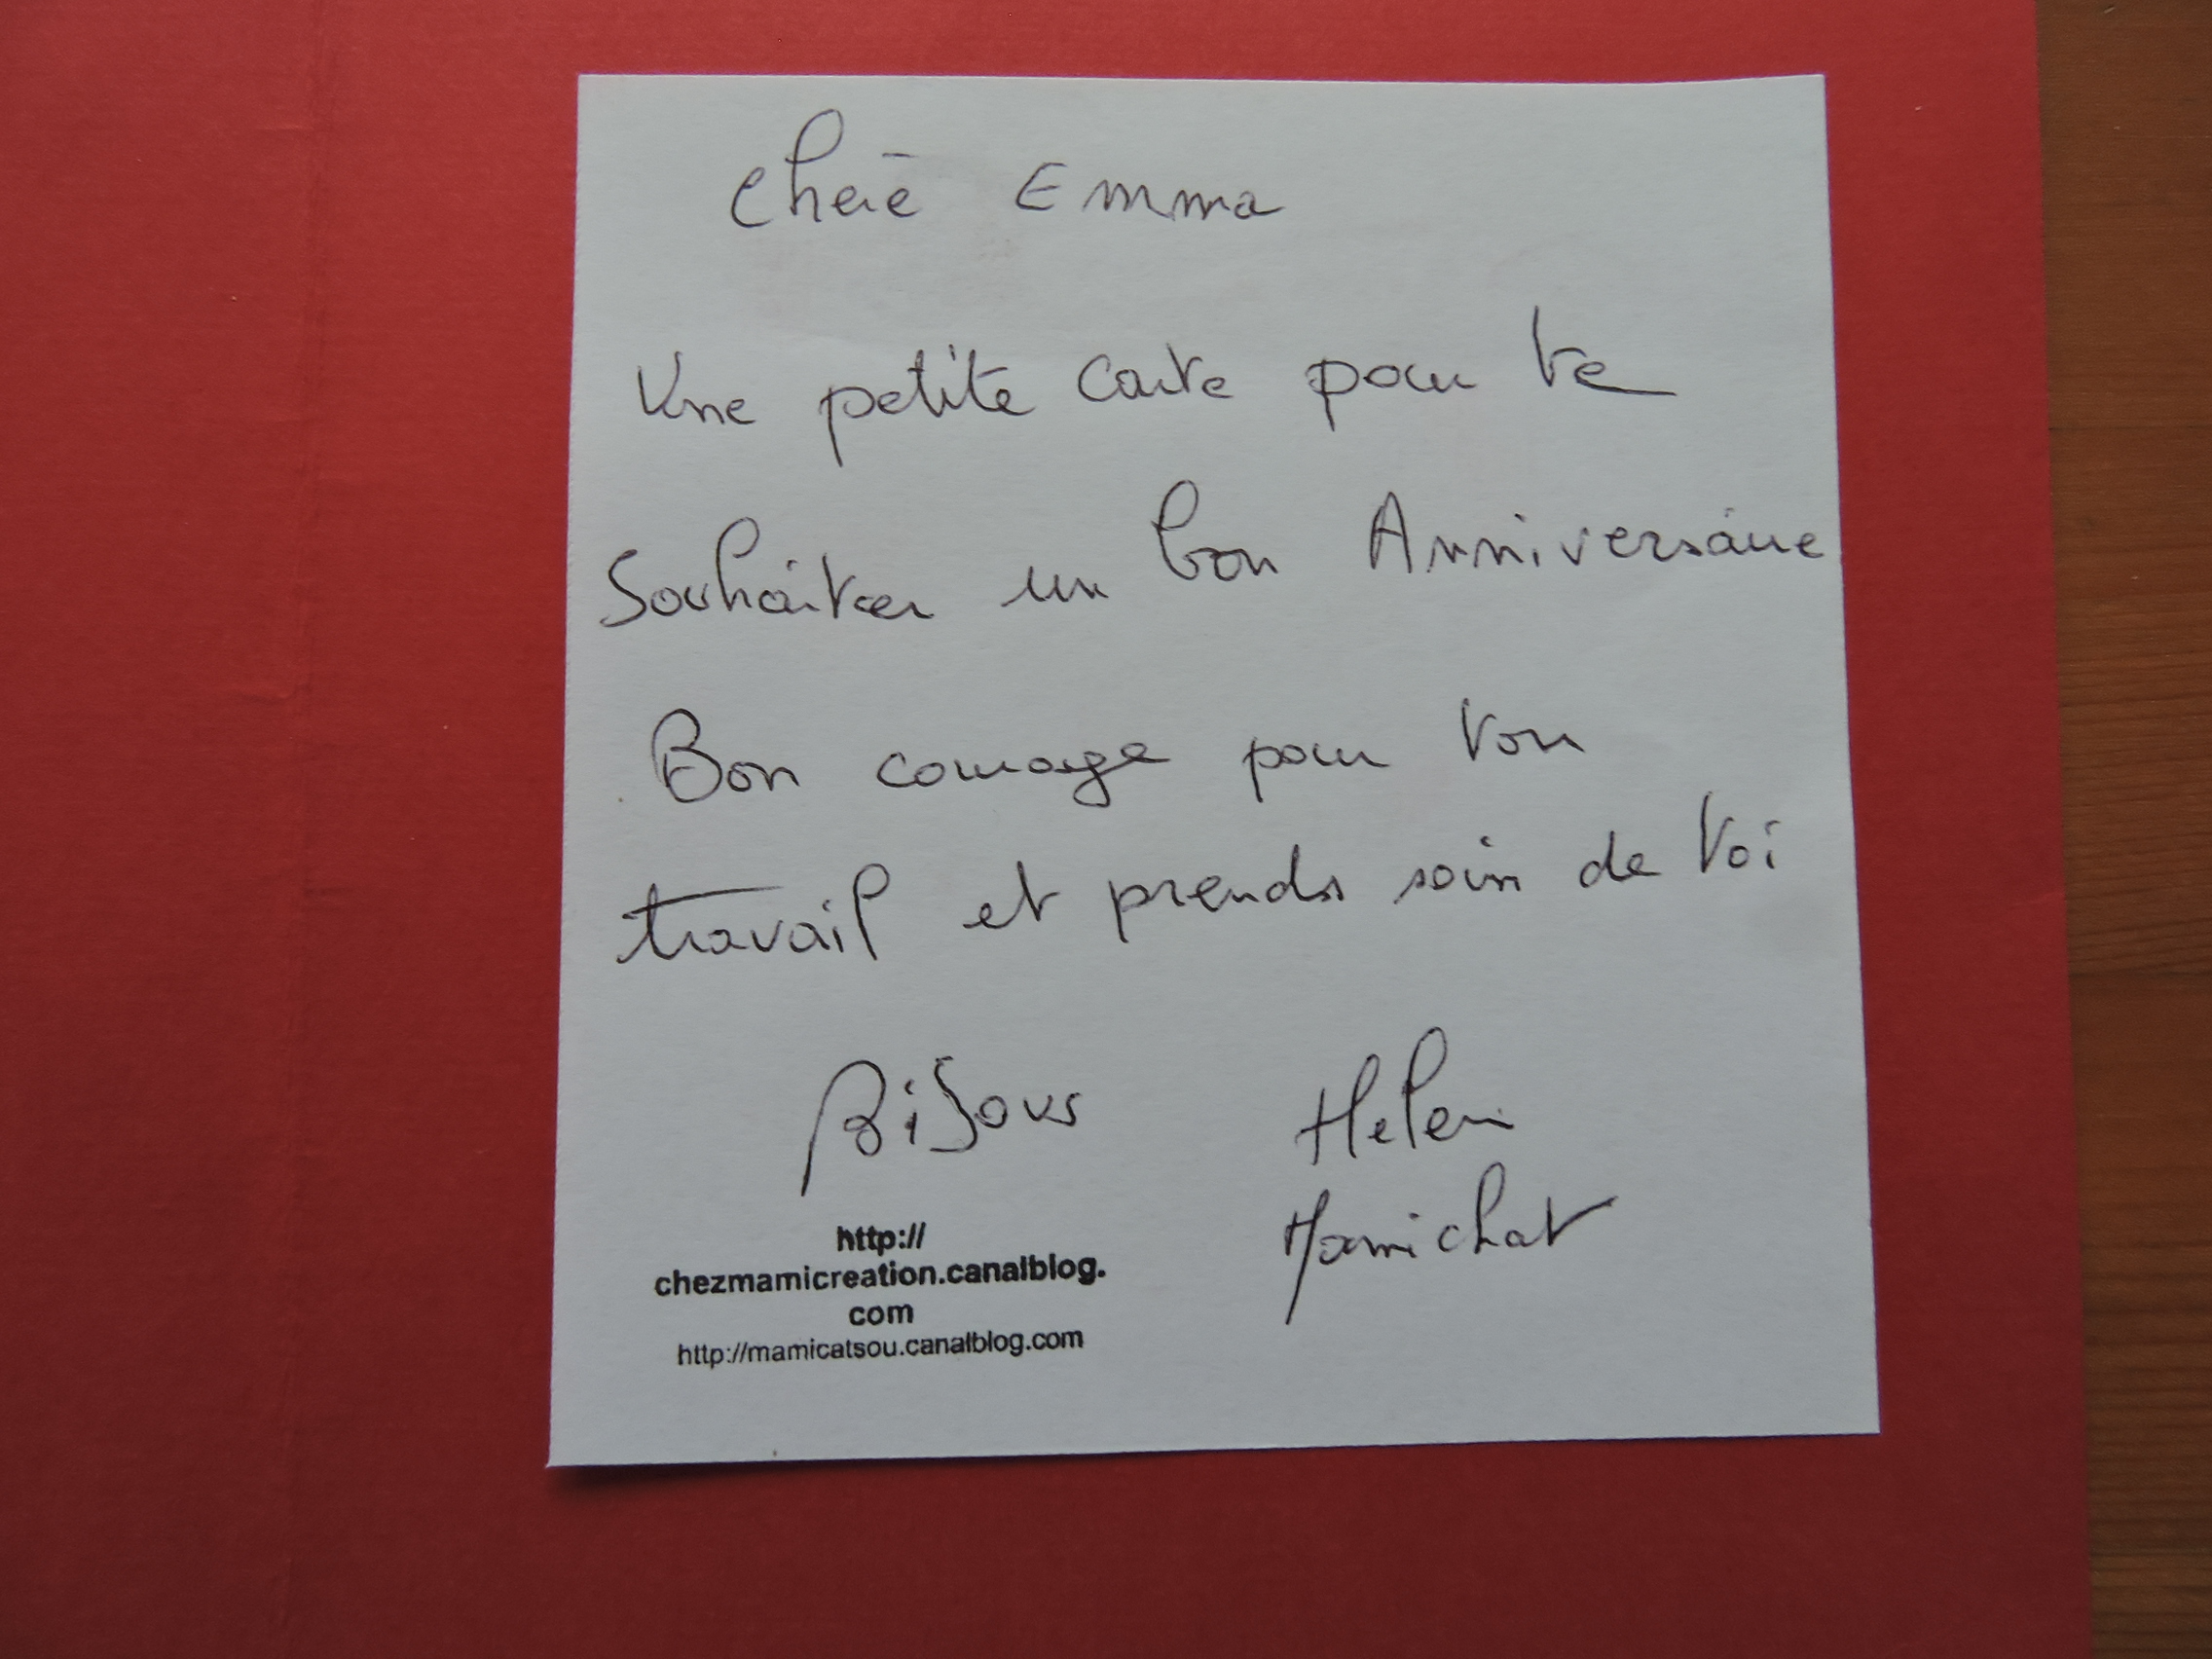 Chère Emma
Une petite carte pour te
Souhaiter un bon Anniversaire
Bon courage pour ton
travail et prends soin de toi
Bisous Helen
Mamichat
http://
chezmamicreation.canalblog.
com
http://mamicatsou.canalblog.com